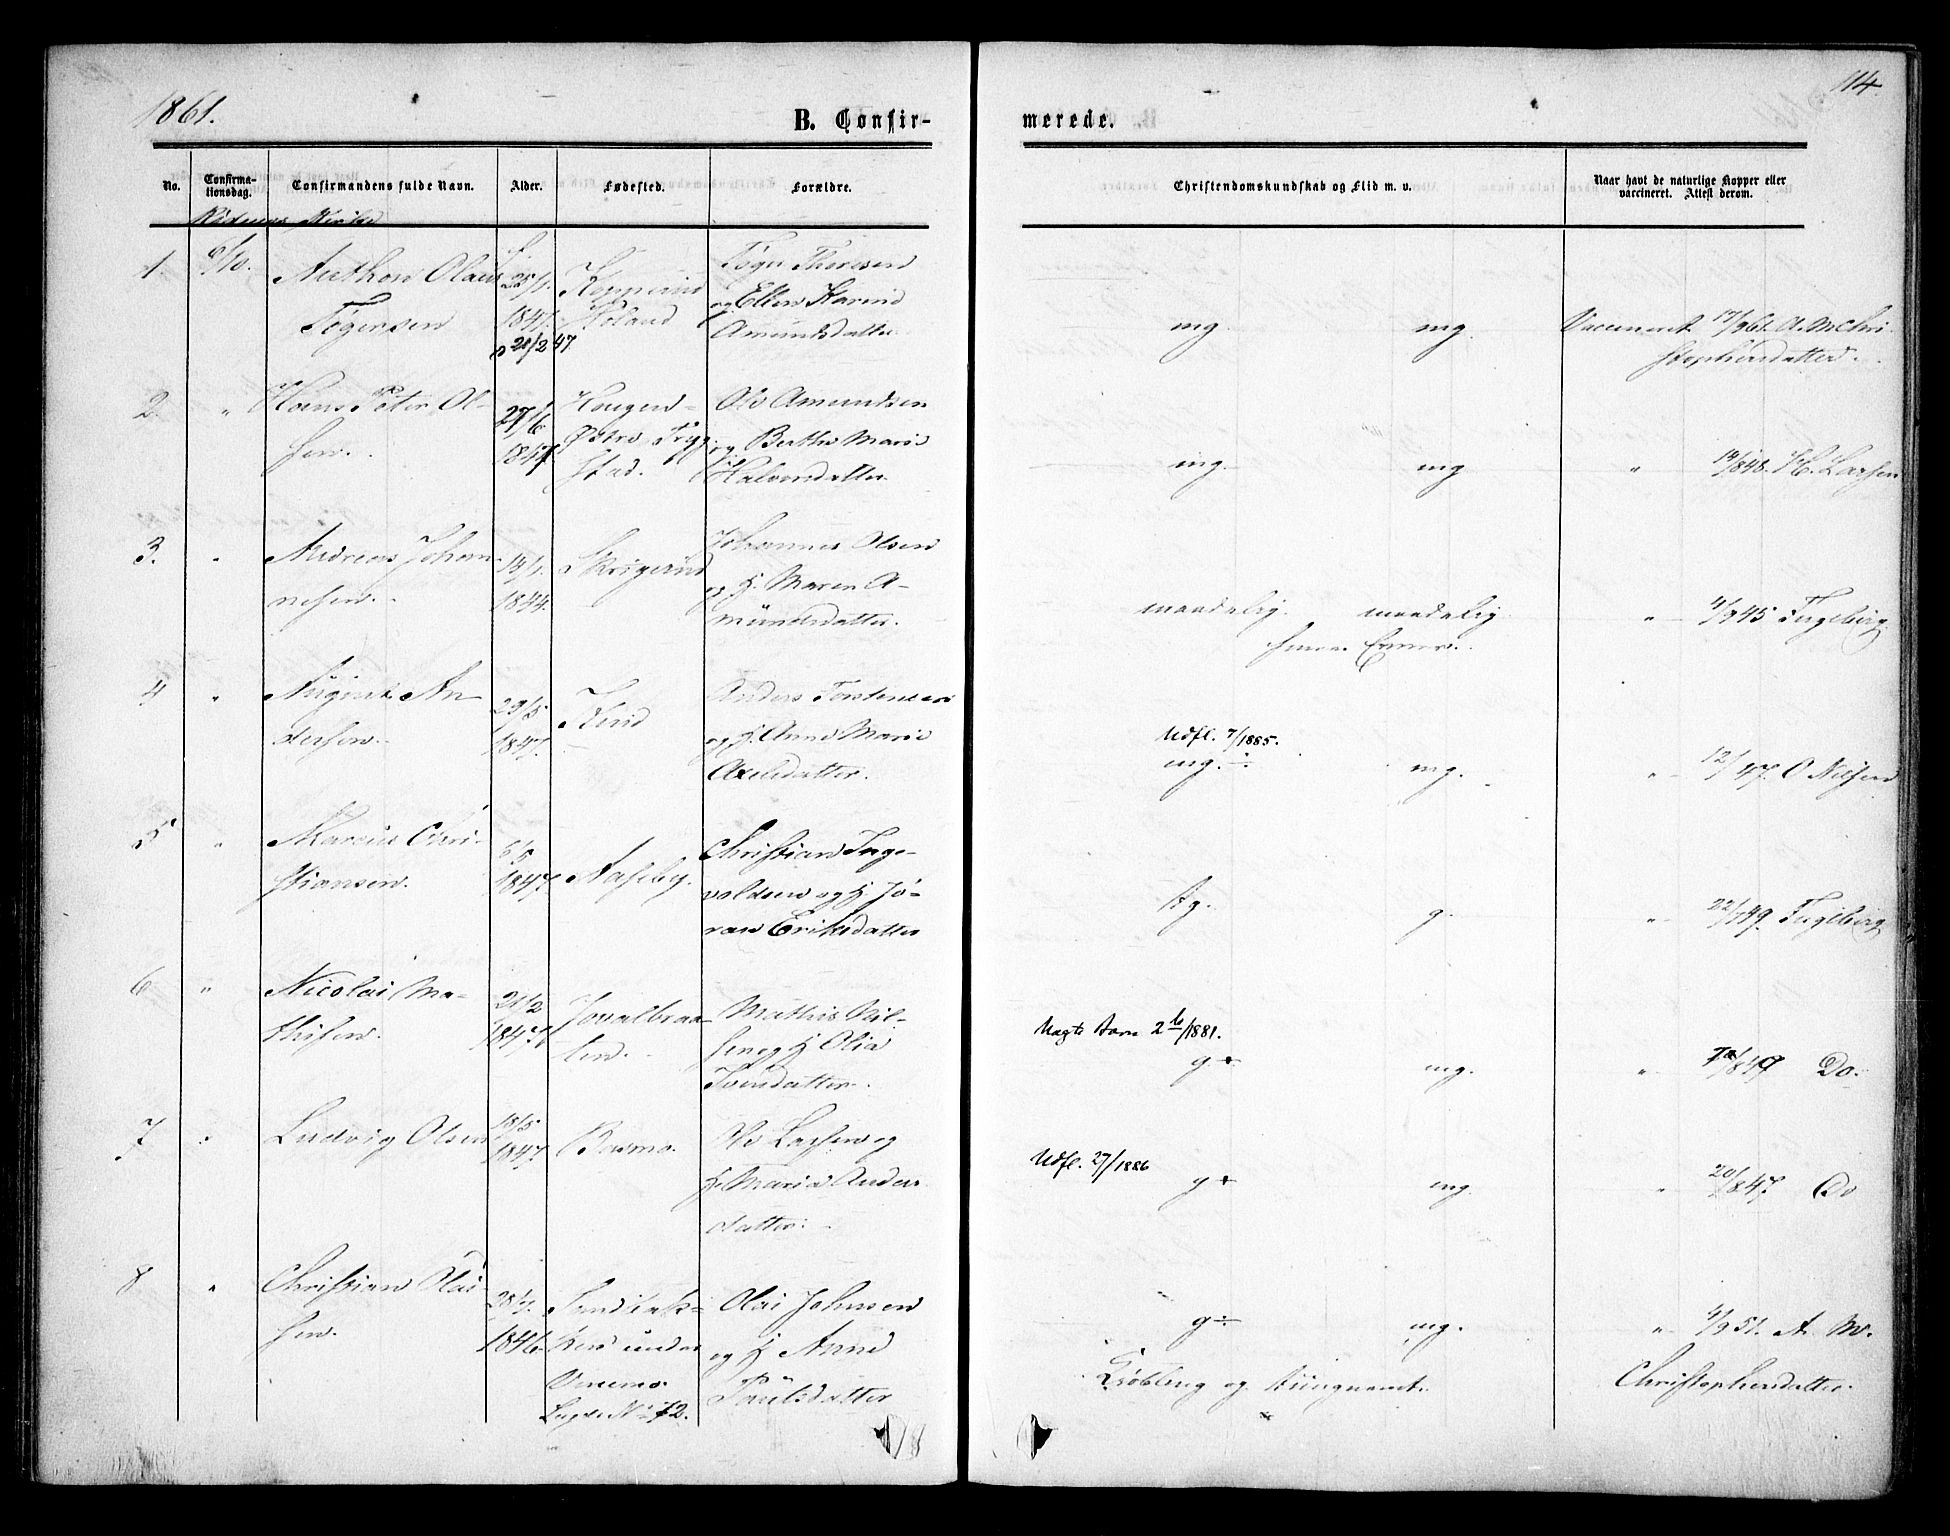 1861.
B. Confir-
merede.
114
No.
Confirma-
tionsdag.
Confirmandens fulde Navn.
Alder.
Fødested.
Forældre.
Christendomskundskab og Flid m. v.
Naar havt de naturlige Kopper eller
vaccineret. Attest derom.
Rødenes Kirke
1.
6/10.
Anthon Olaus
Tøgersen
f.
25/1.
1847.
20/2 47
Høland
Tøger Thoresen
og Ellen Karine
Amundsdatter
mg
mg.
Vaccineret 17/9 61. A. M Chri-
stophersdatter.
2.
"
Hans Peter Ol-
sen.
27/6
1847
Haugen
Østre Trygg-
stad.
Ole Amundsen
og Berthe Marie
Halvorsdatter
mg.
mg
"
19/8 48. H. Larsen
3.
"
Andreas Johan-
nesen.
14/1.
1844.
Skrigerud
Johannes Olsen
og H. Maren A-
mundsdatter.
maadelig.
maadelig
"
4/9 45 Fugleberg
4
"
August An-
dersen.
29/5
1847.
Anders Torstensen
og H. Anne Marie
Axelsdatter.
Udfl. 7/1885.
mg. ÷
mg.
"
12/ 47. O Nilsen
5
"
Marcus Chri-
stiansen.
5/5
1847
Aaseby.
Christian Inge-
valdsen og H Jø-
ran Eriksdatter
g.
g.
"
22/7 49. Fugleberg
6
"
Nicolai Ma-
thisen.
21/2
1847
Jovalbraa-
ten.
Mathis Nil-
sen og H Olia
Iversdatter.
1881.
g +
mg.
"
/8 49 Do.
7
Ludvig Olsen
18/5
1847.
Basmo.
Ole Larsen og
H. Maria Anders
datter.
Udfl. 27/1886
g +
mg
"
20/8 47 Do
8
"
Christian Olai
sen.
28/
1846.
under
No 12.
Olai Johnsen
og H Anne
Paulsdatter
g ÷
mg.
"
4/9 51. A. M.
Christophersdatter.